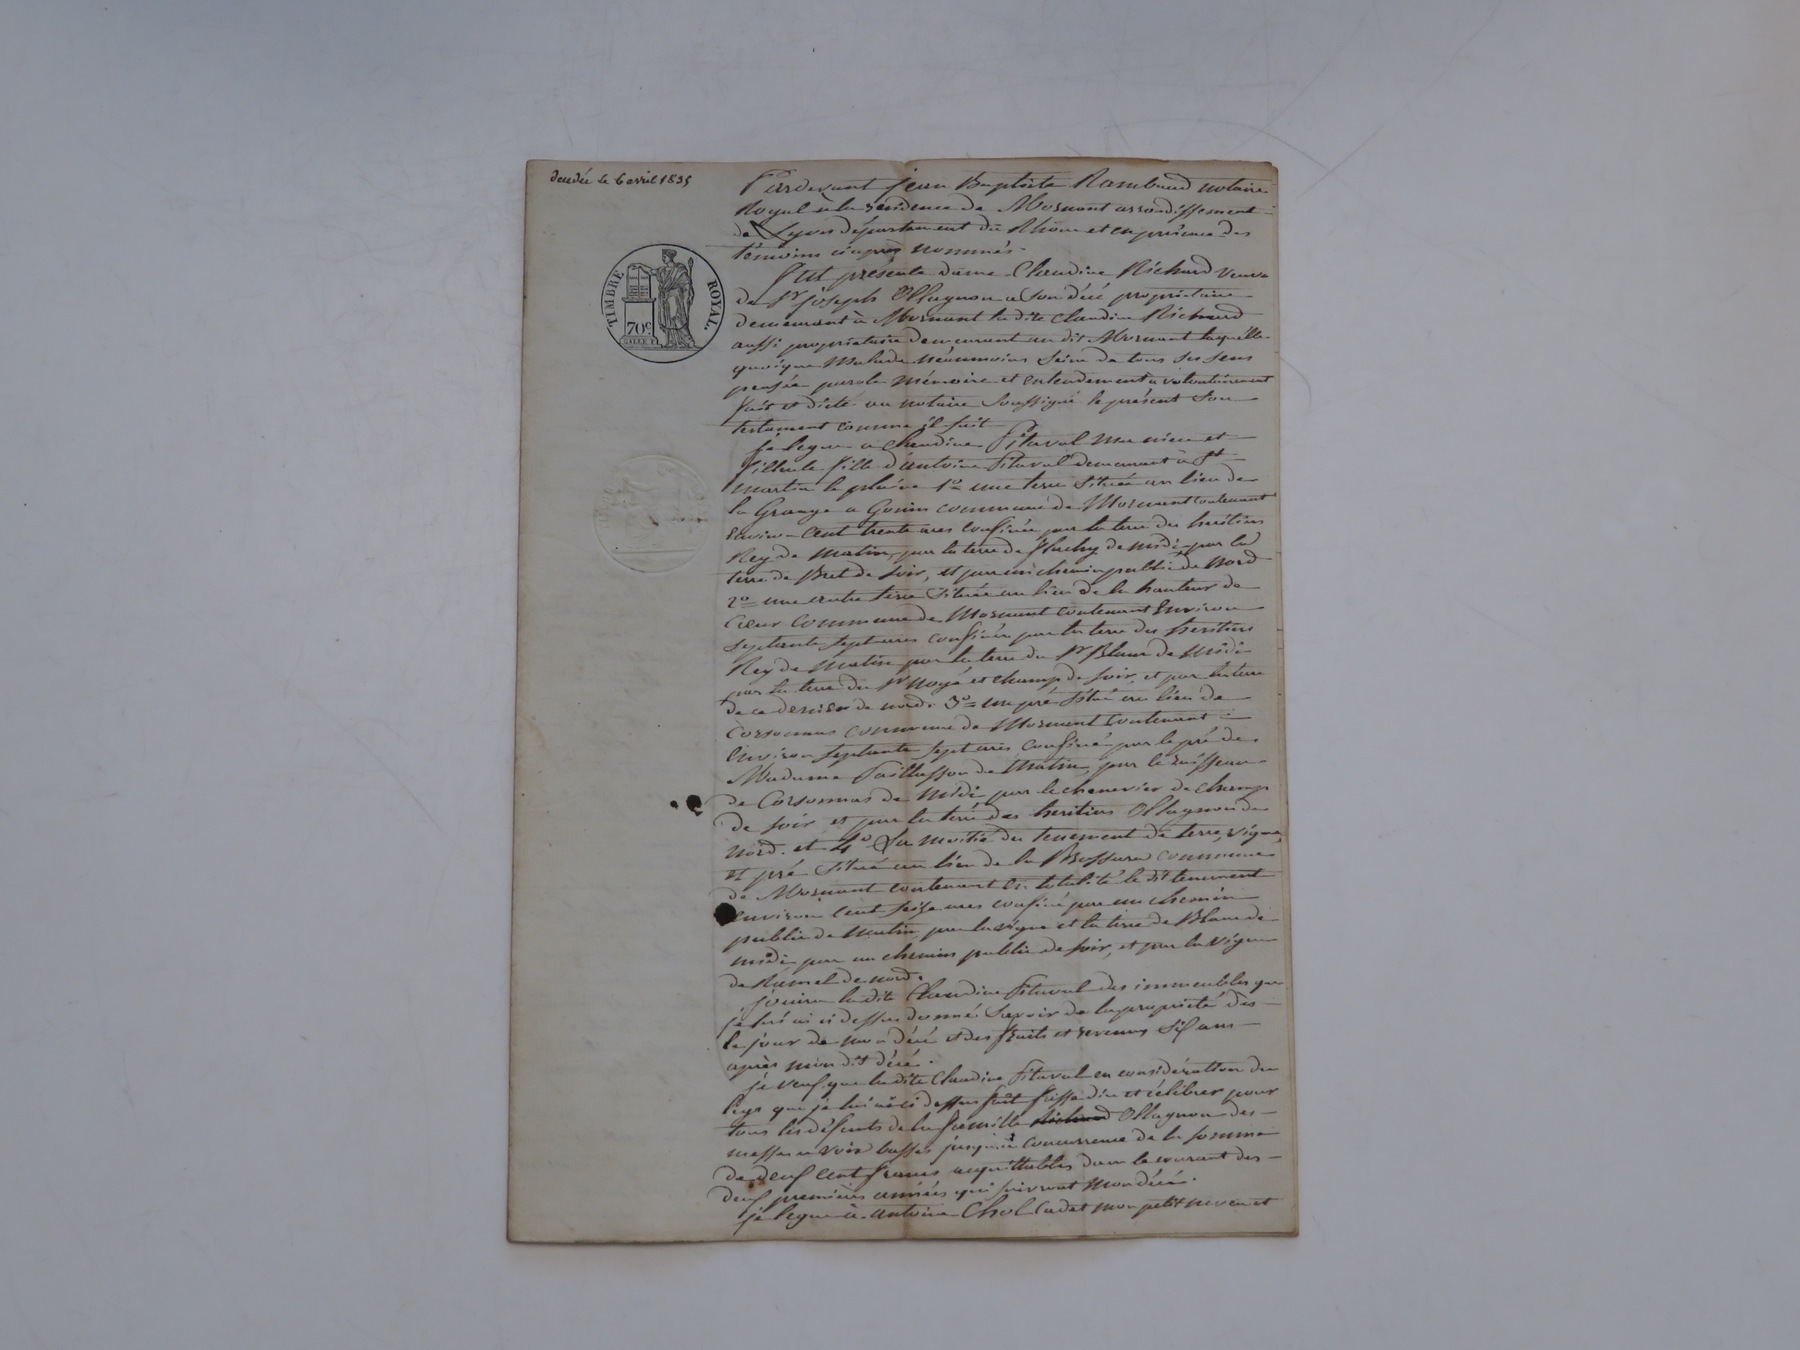 décédée le 6 avril 1835
TIMBRE ROYAL.
70c
Pardevant Jean Baptiste Rambaud notaire
Royal à la résidence de Mornant arrondissement
de Lyon département du Rhône et en présence des
témoins ci après nommés.
fut présente dame Claudine Richard veuve
de Sr joseph Ollagnon a son décé propriétaire
demeurant à Mornant la dite Claudine Richard
aussi propriétaire demeurant au dit Mornant laquelle
quoique Malade néanmoins Seine de tous ses sens
pensée parole Mémoire et entendement a volontairement
fait et dicté au notaire Soussigné le présent Son
testament comme il suit
je legue a Claudine Pitaval Ma niece et
filleule fille d'antoine Pitaval demeurant à St
Martin la plaine 1o une terre Située au lieu de
la Grange a Gonin commune de Mornant contenant
Environ Cent trente ares confinée par la terre des heritiers
Rey de Matin, par la terre de fluchy de midi, par la
terre de Bret de Soir, et par un chemin public de Nord
2o une autre terre Située au lieu de la hauteur de
Cœur Commune de Mornant contenant Environ
Septante Sept ares confinée par la terre des heritiers
Rey de Matin par la terre du Sr Blanc de Midi
par la terre du Sr Noyé et champ de soir, et par la terre
de ce dernier de nord. 3o un pré Situé au lieu de
Corsonnas commune de Mornant Contenant
Environ Septante Sept ares confiné par le pré de
Madame Paillasson de Matin, par le ruisseau
de Corsonnas de Midi par le chenevier de champ
de soir et par la terre des heritiers Ollagnon de
Nord. et 4o La moitié du tenement de terre, vigne,
et pré Situé au lieu de la Bussura commune
de Mornant contenant En totalité le dit tenement
environ Cent seize ares confiné par un chemin
public de Matin, par la vigne et la terre de Blanc de
midi par un chemin public de soir, et par la vigne
de Ramel de nord.
jouira la dite Claudine Pitaval des immeubles que
je lui ai ci dessus donné Savoir de la propriété dès
le jour de mon décé et des fruits et revenus Six ans
après mon dit décé.
je veux que la dite Claudine Pitaval en considération du
legs que je lui ai ci dessus fait fasse dire et célébrer pour
tous les défunts de la famille Richard Ollagnon des
messes a voix basses jusqu'à concurrence de la somme
de deux Cent francs acquittables dans le courant des
deux premières années qui suivront Mon décé.
je legue à antoine Chol Cadet mon petit neveu et